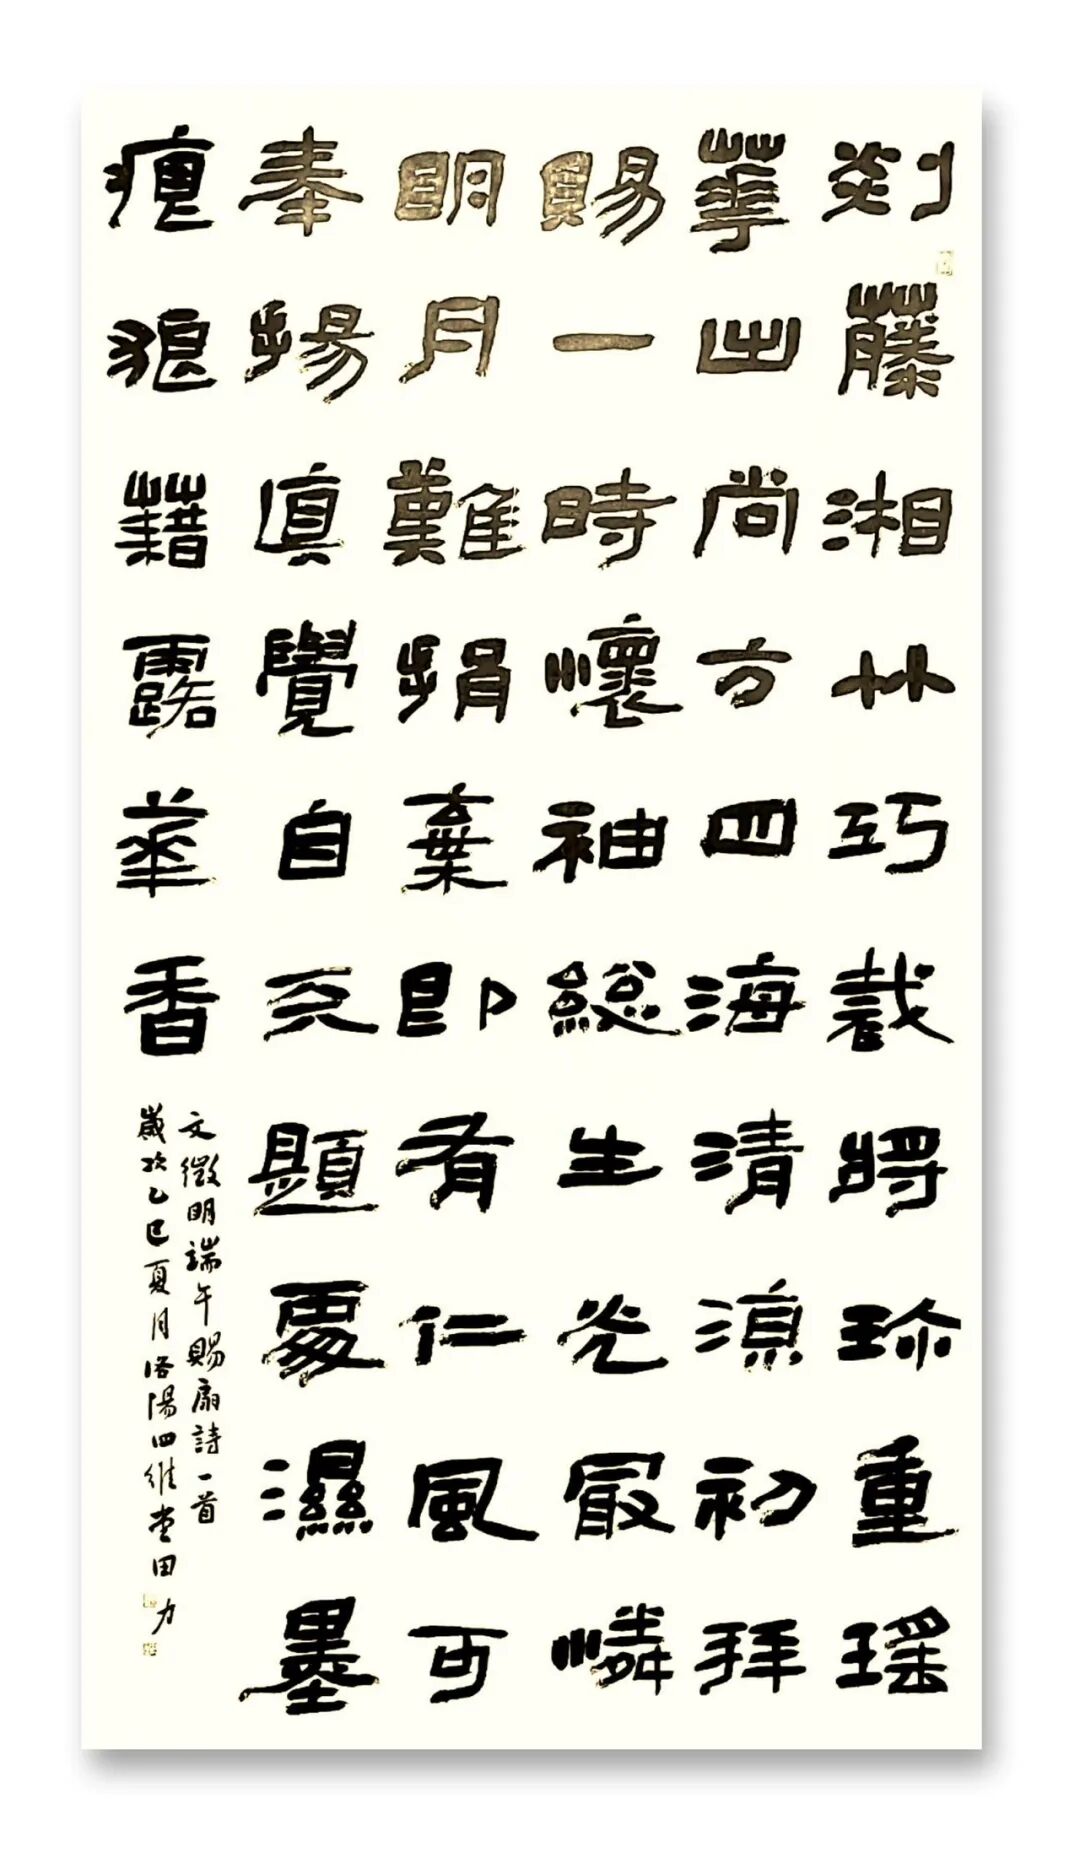 剡藤湘竹巧裁將珎重瑶
華出尚方四海清涼初拜
賜一時懷袖総生光冣憐
明月難捐棄即有仁風可
奉揚真覺自天題處濕墨
痕狼藉露華香
文徵明端午賜扇詩一首
歲次乙巳夏月洛陽四維堂田力